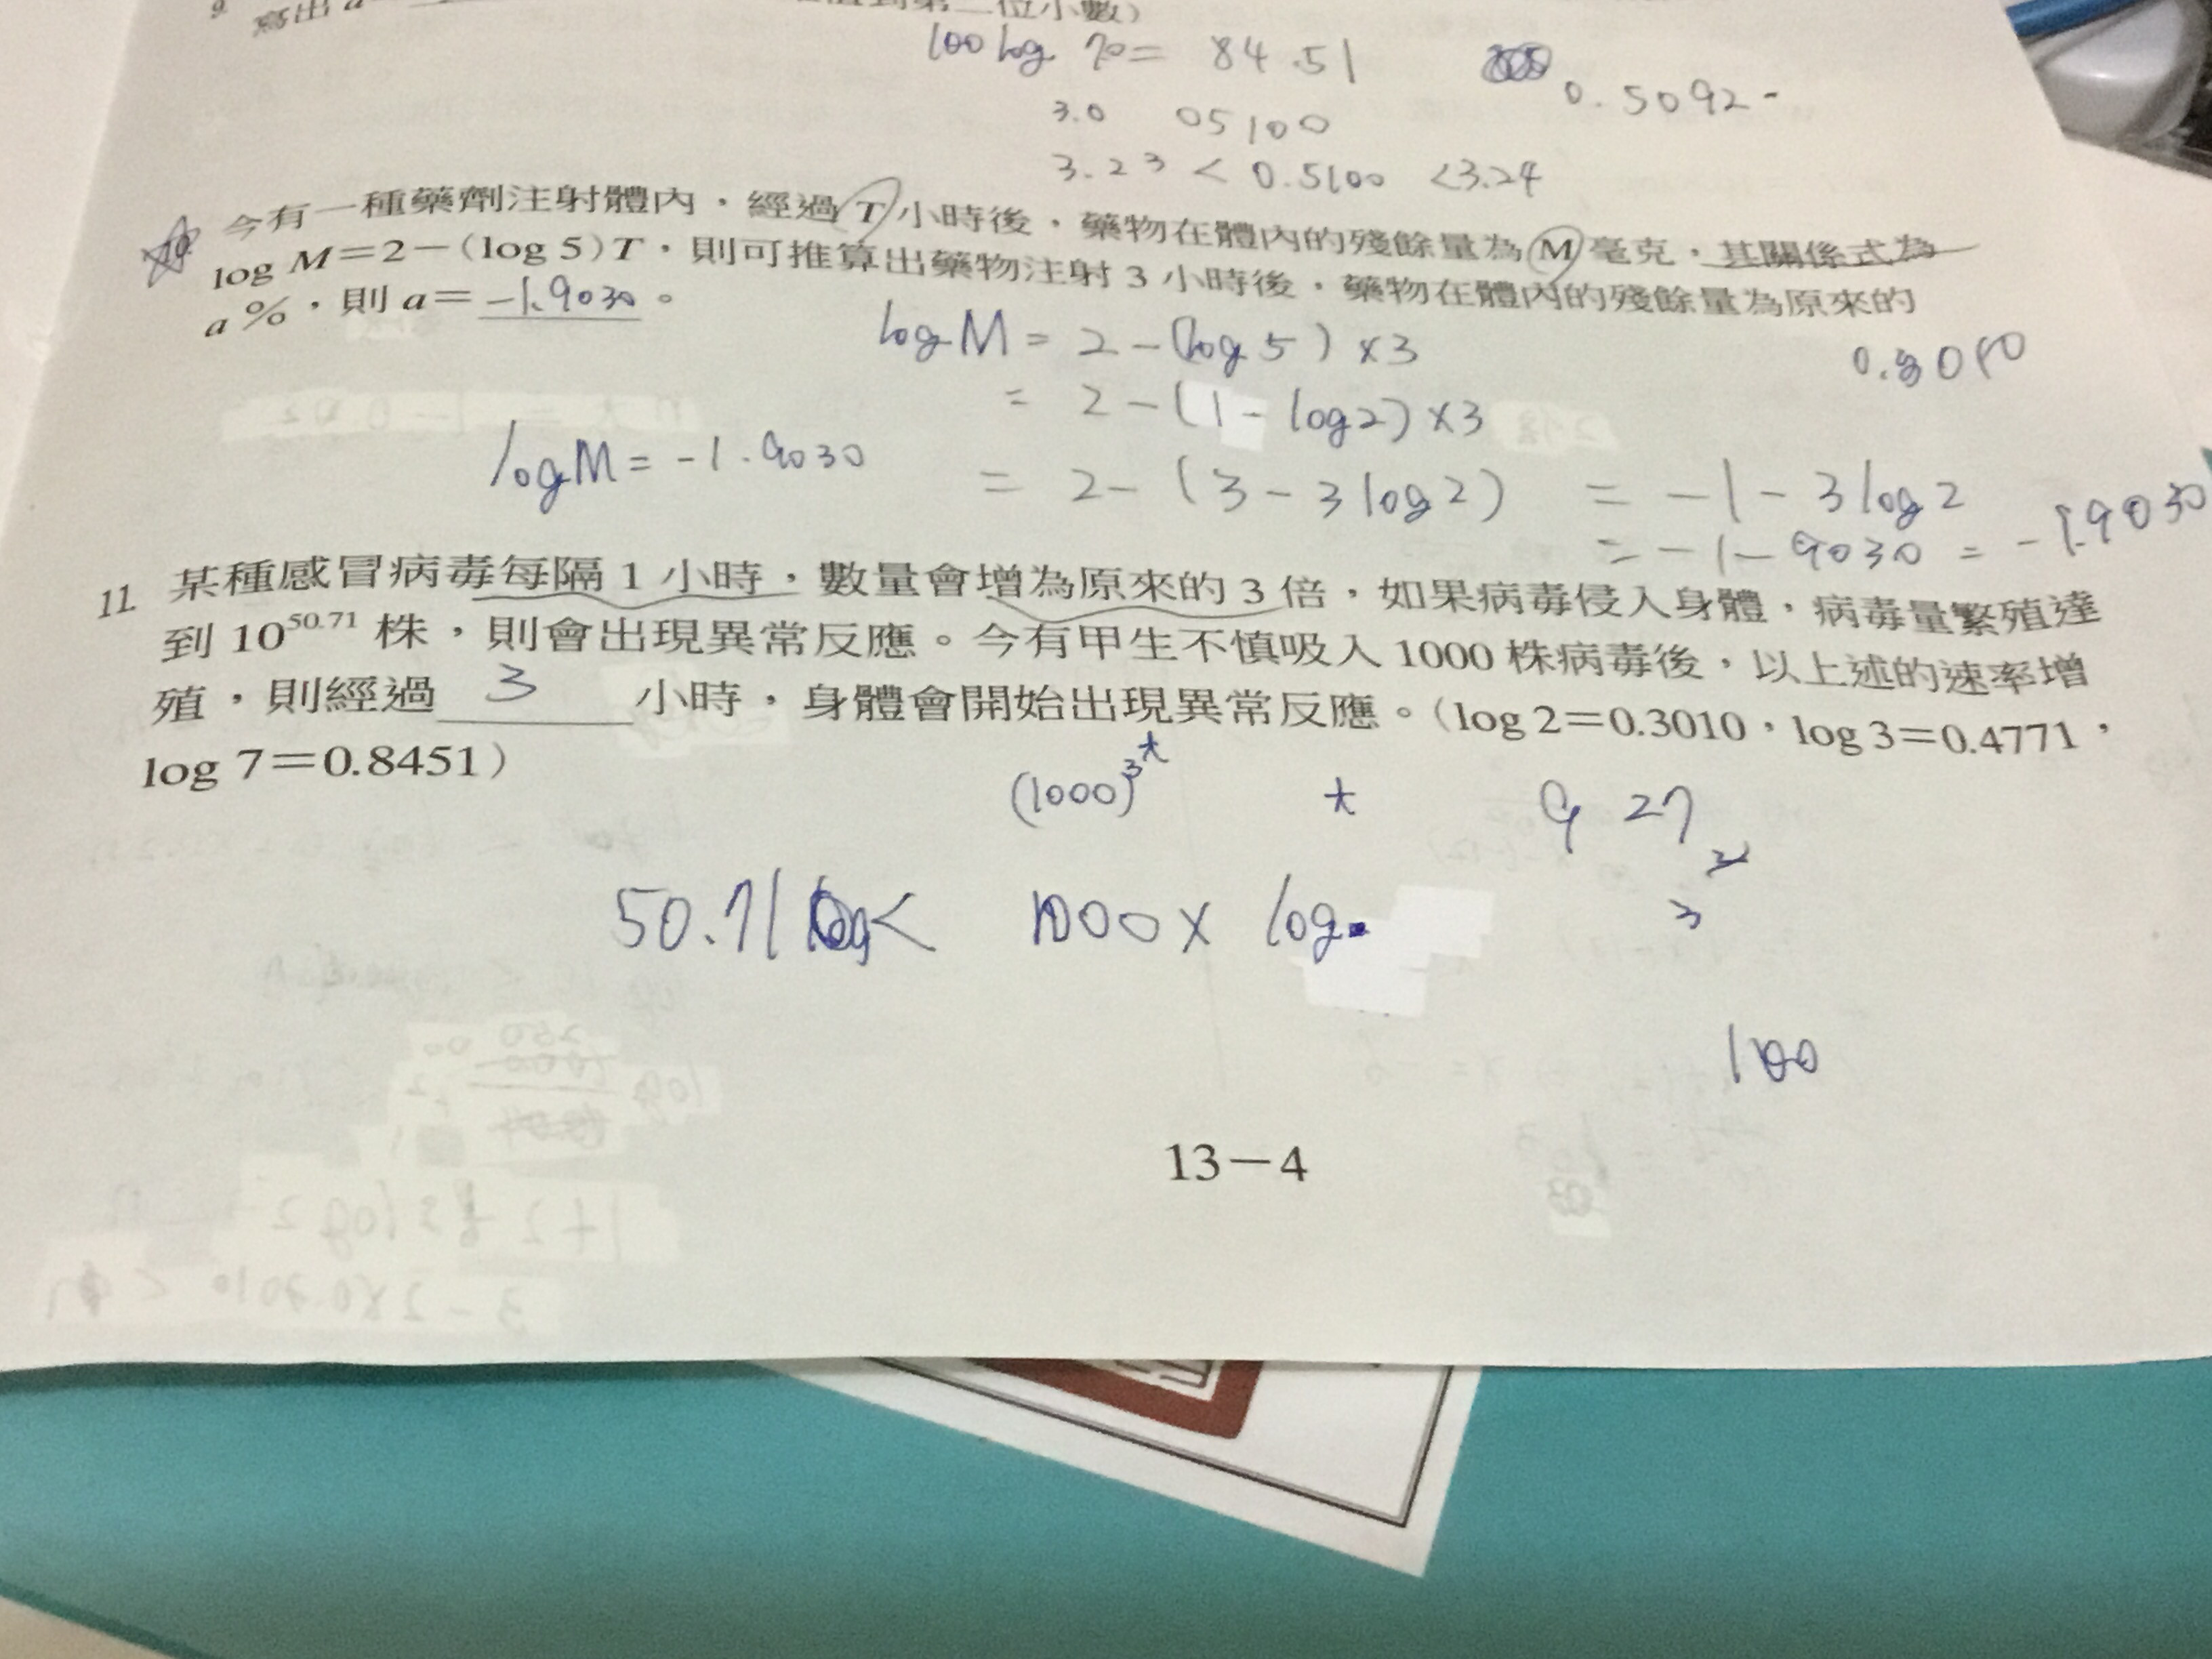 100 log 70 = 84.51
0.5092-
3.0 05100
3.23 < 0.5100 <3.24
10. 今有一種藥劑注射體內，經過 T 小時後，藥物在體內的殘餘量為 M 毫克，其關係式為
log M＝2－(log 5)T，則可推算出藥物注射 3 小時後，藥物在體內的殘餘量為原來的
a %，則 a＝ -1.9030 。
log M = 2 - (log 5) × 3
0.3010
= 2 - (1 - log2) × 3
log M = -1.9030
= 2 - (3 - 3 log 2) = -1 - 3 log 2
= -1 - 9030 = -1.9030
11. 某種感冒病毒每隔 1 小時，數量會增為原來的 3 倍，如果病毒侵入身體，病毒量繁殖達
到 10^50.71 株，則會出現異常反應。今有甲生不慎吸入 1000 株病毒後，以上述的速率增
殖，則經過 3 小時，身體會開始出現異常反應。（log 2＝0.3010，log 3＝0.4771，
log 7＝0.8451）
(1000)^3^t t 9 27
3
50.71 < 1000 × log
100
13－4